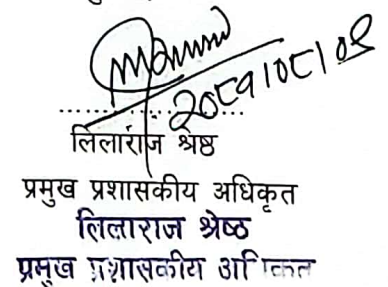 २०८१।०८।०९
लिलाराज श्रेष्ठ
प्रमुख प्रशासकीय अधिकृत
लिलाराज श्रेष्ठ
प्रमुख प्रशासकीय